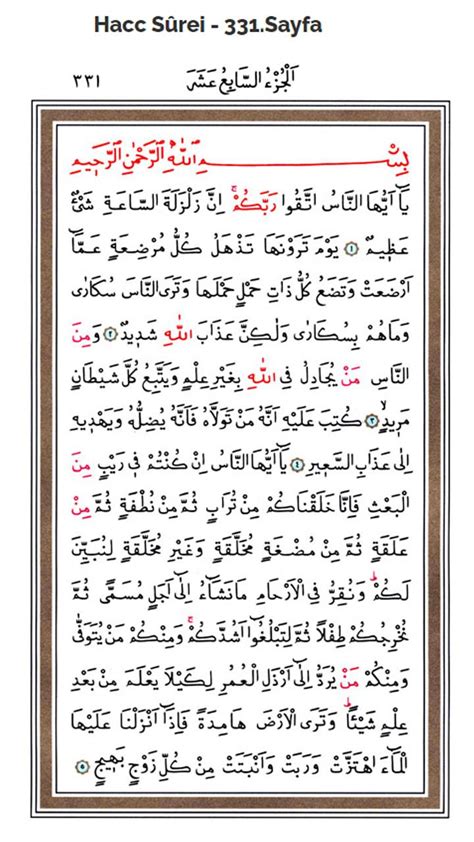 Hacc Sûrei - 331.Sayfa
اَلْجُزْءُ السَّابِعُ عَشَرَ
٣٣١
بِسْمِ اللّٰهِ الرَّحْمٰنِ الرَّحٖيمِ
يَٓا اَيُّهَا النَّاسُ اتَّقُوا رَبَّكُمْۚ اِنَّ زَلْزَلَةَ السَّاعَةِ شَيْءٌ
عَظٖيمٌ ﴿١﴾ يَوْمَ تَرَوْنَهَا تَذْهَلُ كُلُّ مُرْضِعَةٍ عَمَّٓا
اَرْضَعَتْ وَتَضَعُ كُلُّ ذَاتِ حَمْلٍ حَمْلَهَا وَتَرَى النَّاسَ سُكَارٰى
وَمَا هُمْ بِسُكَارٰى وَلٰكِنَّ عَذَابَ اللّٰهِ شَدٖيدٌ ﴿٢﴾ وَمِنَ
النَّاسِ مَنْ يُجَادِلُ فِي اللّٰهِ بِغَيْرِ عِلْمٍ وَيَتَّبِعُ كُلَّ شَيْطَانٍ
مَرٖيدٍۙ ﴿٣﴾ كُتِبَ عَلَيْهِ اَنَّهُ مَنْ تَوَلَّاهُ فَاَنَّهُ يُضِلُّهُ وَيَهْدٖيهِ
اِلٰى عَذَابِ السَّعٖيرِ ﴿٤﴾ يَٓا اَيُّهَا النَّاسُ اِنْ كُنْتُمْ فٖي رَيْبٍ مِنَ
الْبَعْثِ فَاِنَّا خَلَقْنَاكُمْ مِنْ تُرَابٍ ثُمَّ مِنْ نُطْفَةٍ ثُمَّ مِنْ
عَلَقَةٍ ثُمَّ مِنْ مُضْغَةٍ مُخَلَّقَةٍ وَغَيْرِ مُخَلَّقَةٍ لِنُبَيِّنَ
لَكُمْؕ وَنُقِرُّ فِي الْاَرْحَامِ مَا نَشَٓاءُ اِلٰٓى اَجَلٍ مُسَمًّى ثُمَّ
نُخْرِجُكُمْ طِفْلًا ثُمَّ لِتَبْلُغُٓوا اَشُدَّكُمْۚ وَمِنْكُمْ مَنْ يُتَوَفّٰى
وَمِنْكُمْ مَنْ يُرَدُّ اِلٰٓى اَرْذَلِ الْعُمُرِ لِكَيْلَا يَعْلَمَ مِنْ بَعْدِ
عِلْمٍ شَيْـًٔاؕ وَتَرَى الْاَرْضَ هَامِدَةً فَاِذَٓا اَنْزَلْنَا عَلَيْهَا
الْمَٓاءَ اهْتَزَّتْ وَرَبَتْ وَاَنْبَتَتْ مِنْ كُلِّ زَوْجٍ بَهٖيجٍ ﴿٥﴾